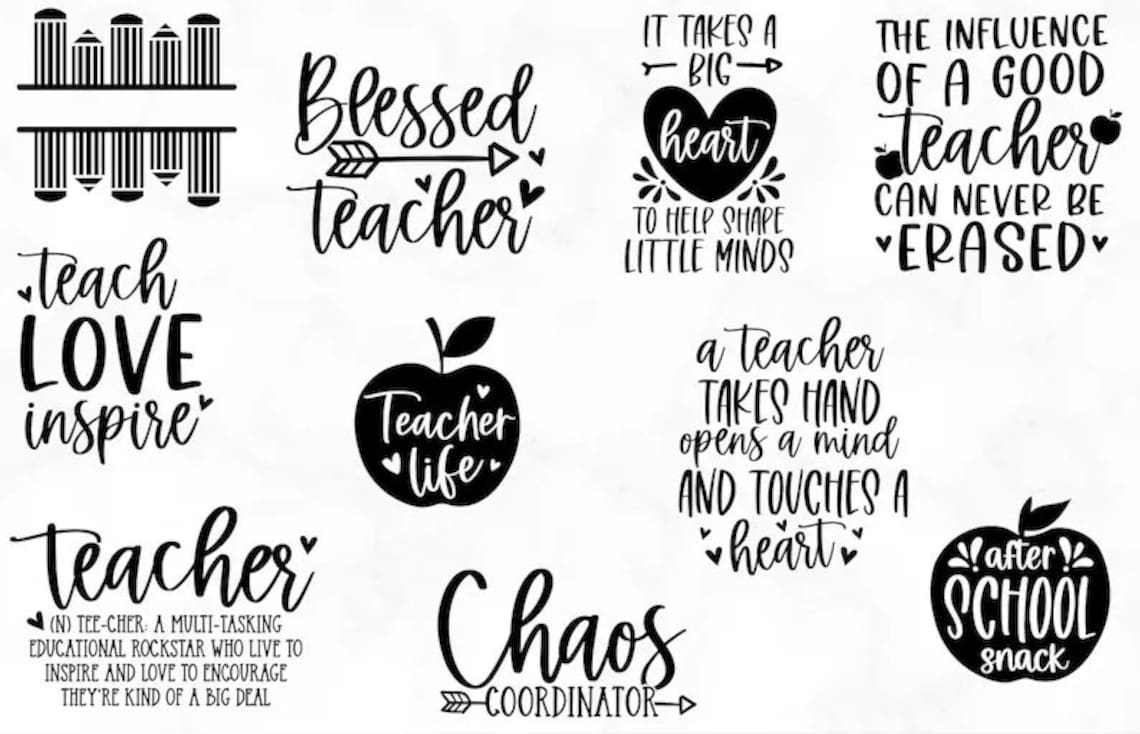 Blessed
teacher
IT TAKES A
BIG
heart
TO HELP SHAPE
LITTLE MINDS
THE INFLUENCE
OF A GOOD
teacher
CAN NEVER BE
ERASED
teach
LOVE
inspire
Teacher
life
a teacher
TAKES HAND
opens a mind
AND TOUCHES A
heart
teacher
(N) TEE-CHER: A MULTI-TASKING
EDUCATIONAL ROCKSTAR WHO LIVE TO
INSPIRE AND LOVE TO ENCOURAGE
THEY'RE KIND OF A BIG DEAL
Chaos
COORDINATOR
after
SCHOOL
snack